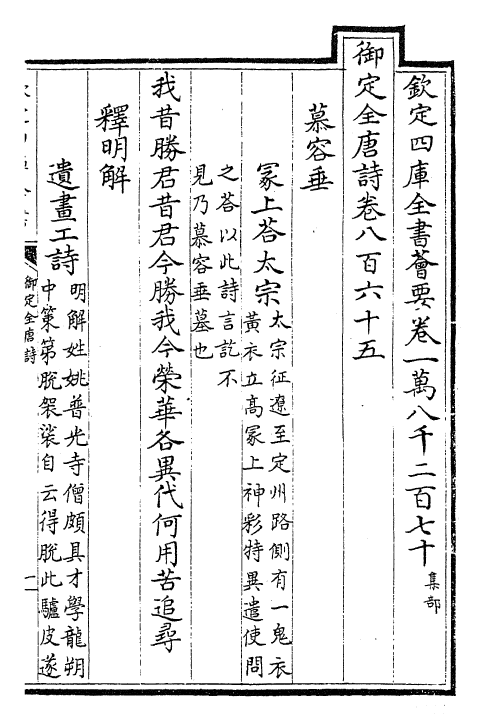 欽定四庫全書薈要卷一萬八千二百七十 集部
御定全唐詩卷八百六十五
慕容垂
冢上荅太宗 太宗征遼至定州路側有一鬼衣
黃衣立高冢上神彩特異遣使問
之荅以此詩言訖不
見乃慕容垂墓也
我昔勝君昔君今勝我今榮華各異代何用苦追尋
釋明解
遺畫工詩 明解姓姚普光寺僧頗具才學龍朔
中策第脫袈裟自云得脫此驢皮遂
御定全唐詩
一